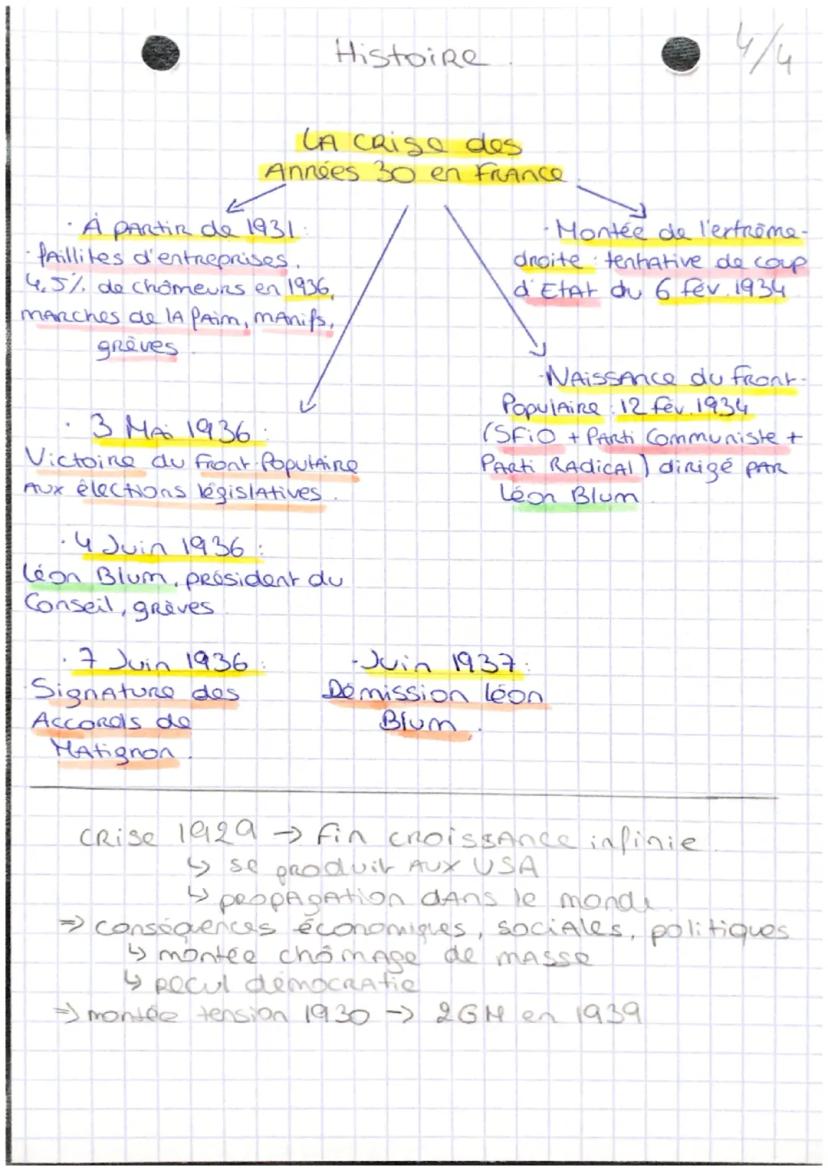 Histoire.
4/4
LA CRISE des
Années 30 en FRANCE
· À partir de 1931:
· faillites d'entreprises,
4,5% de chômeurs en 1936,
marches de la faim, manifs,
grèves
· Montée de l'extrême-
droite : tentative de coup
d'Etat du 6 fév. 1934
· Naissance du Front-
Populaire : 12 fév. 1934
(SFIO + Parti Communiste +
Parti Radical) dirigé par
Léon Blum
· 3 Mai 1936 :
Victoire du Front-Populaire
aux élections législatives.
· 4 Juin 1936 :
Léon Blum, président du
Conseil, grèves
· 7 Juin 1936 :
Signature des
Accords de
Matignon.
· Juin 1937:
Démission Léon
Blum.
crise 1929 → fin croissance infinie.
↳ se produit aux USA
↳ propagation dans le monde
⇒ conséquences économiques, sociales, politiques
↳ montée chômage de masse
↳ recul démocratie
⇒ montée tension 1930 → 2GM en 1939